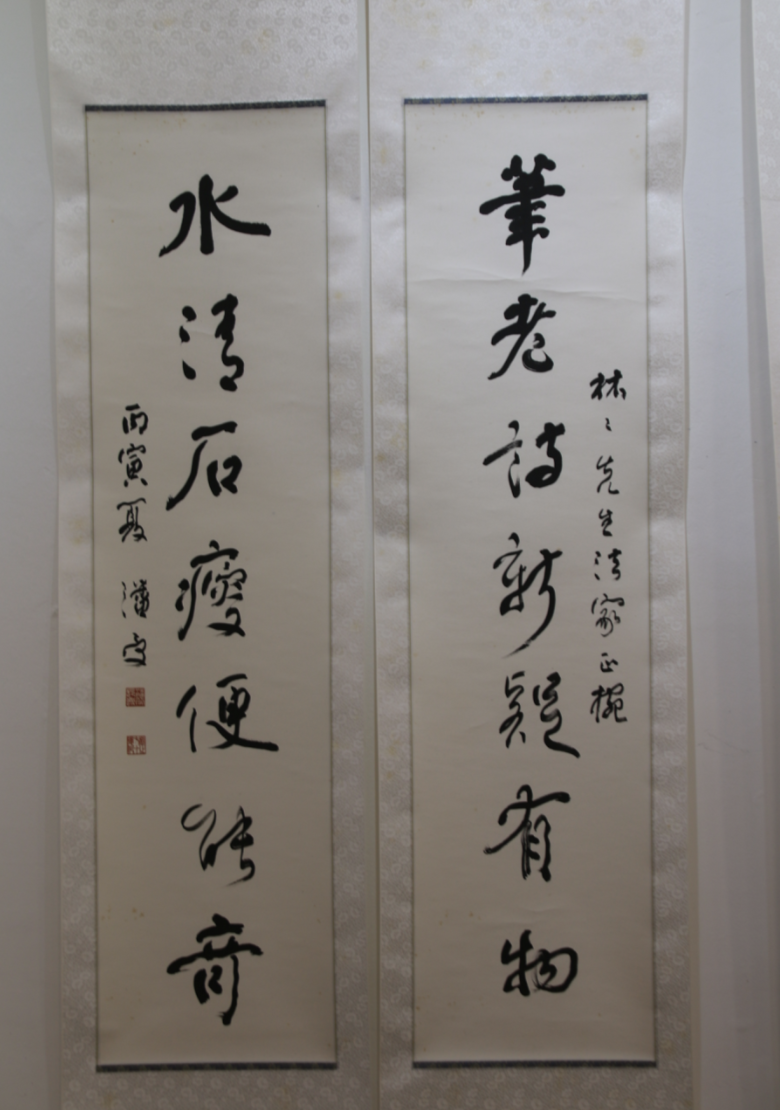 林〻先生法家正椀
筆老詩新疑有物
水清石瘦便能奇
丙寅夏 潘受